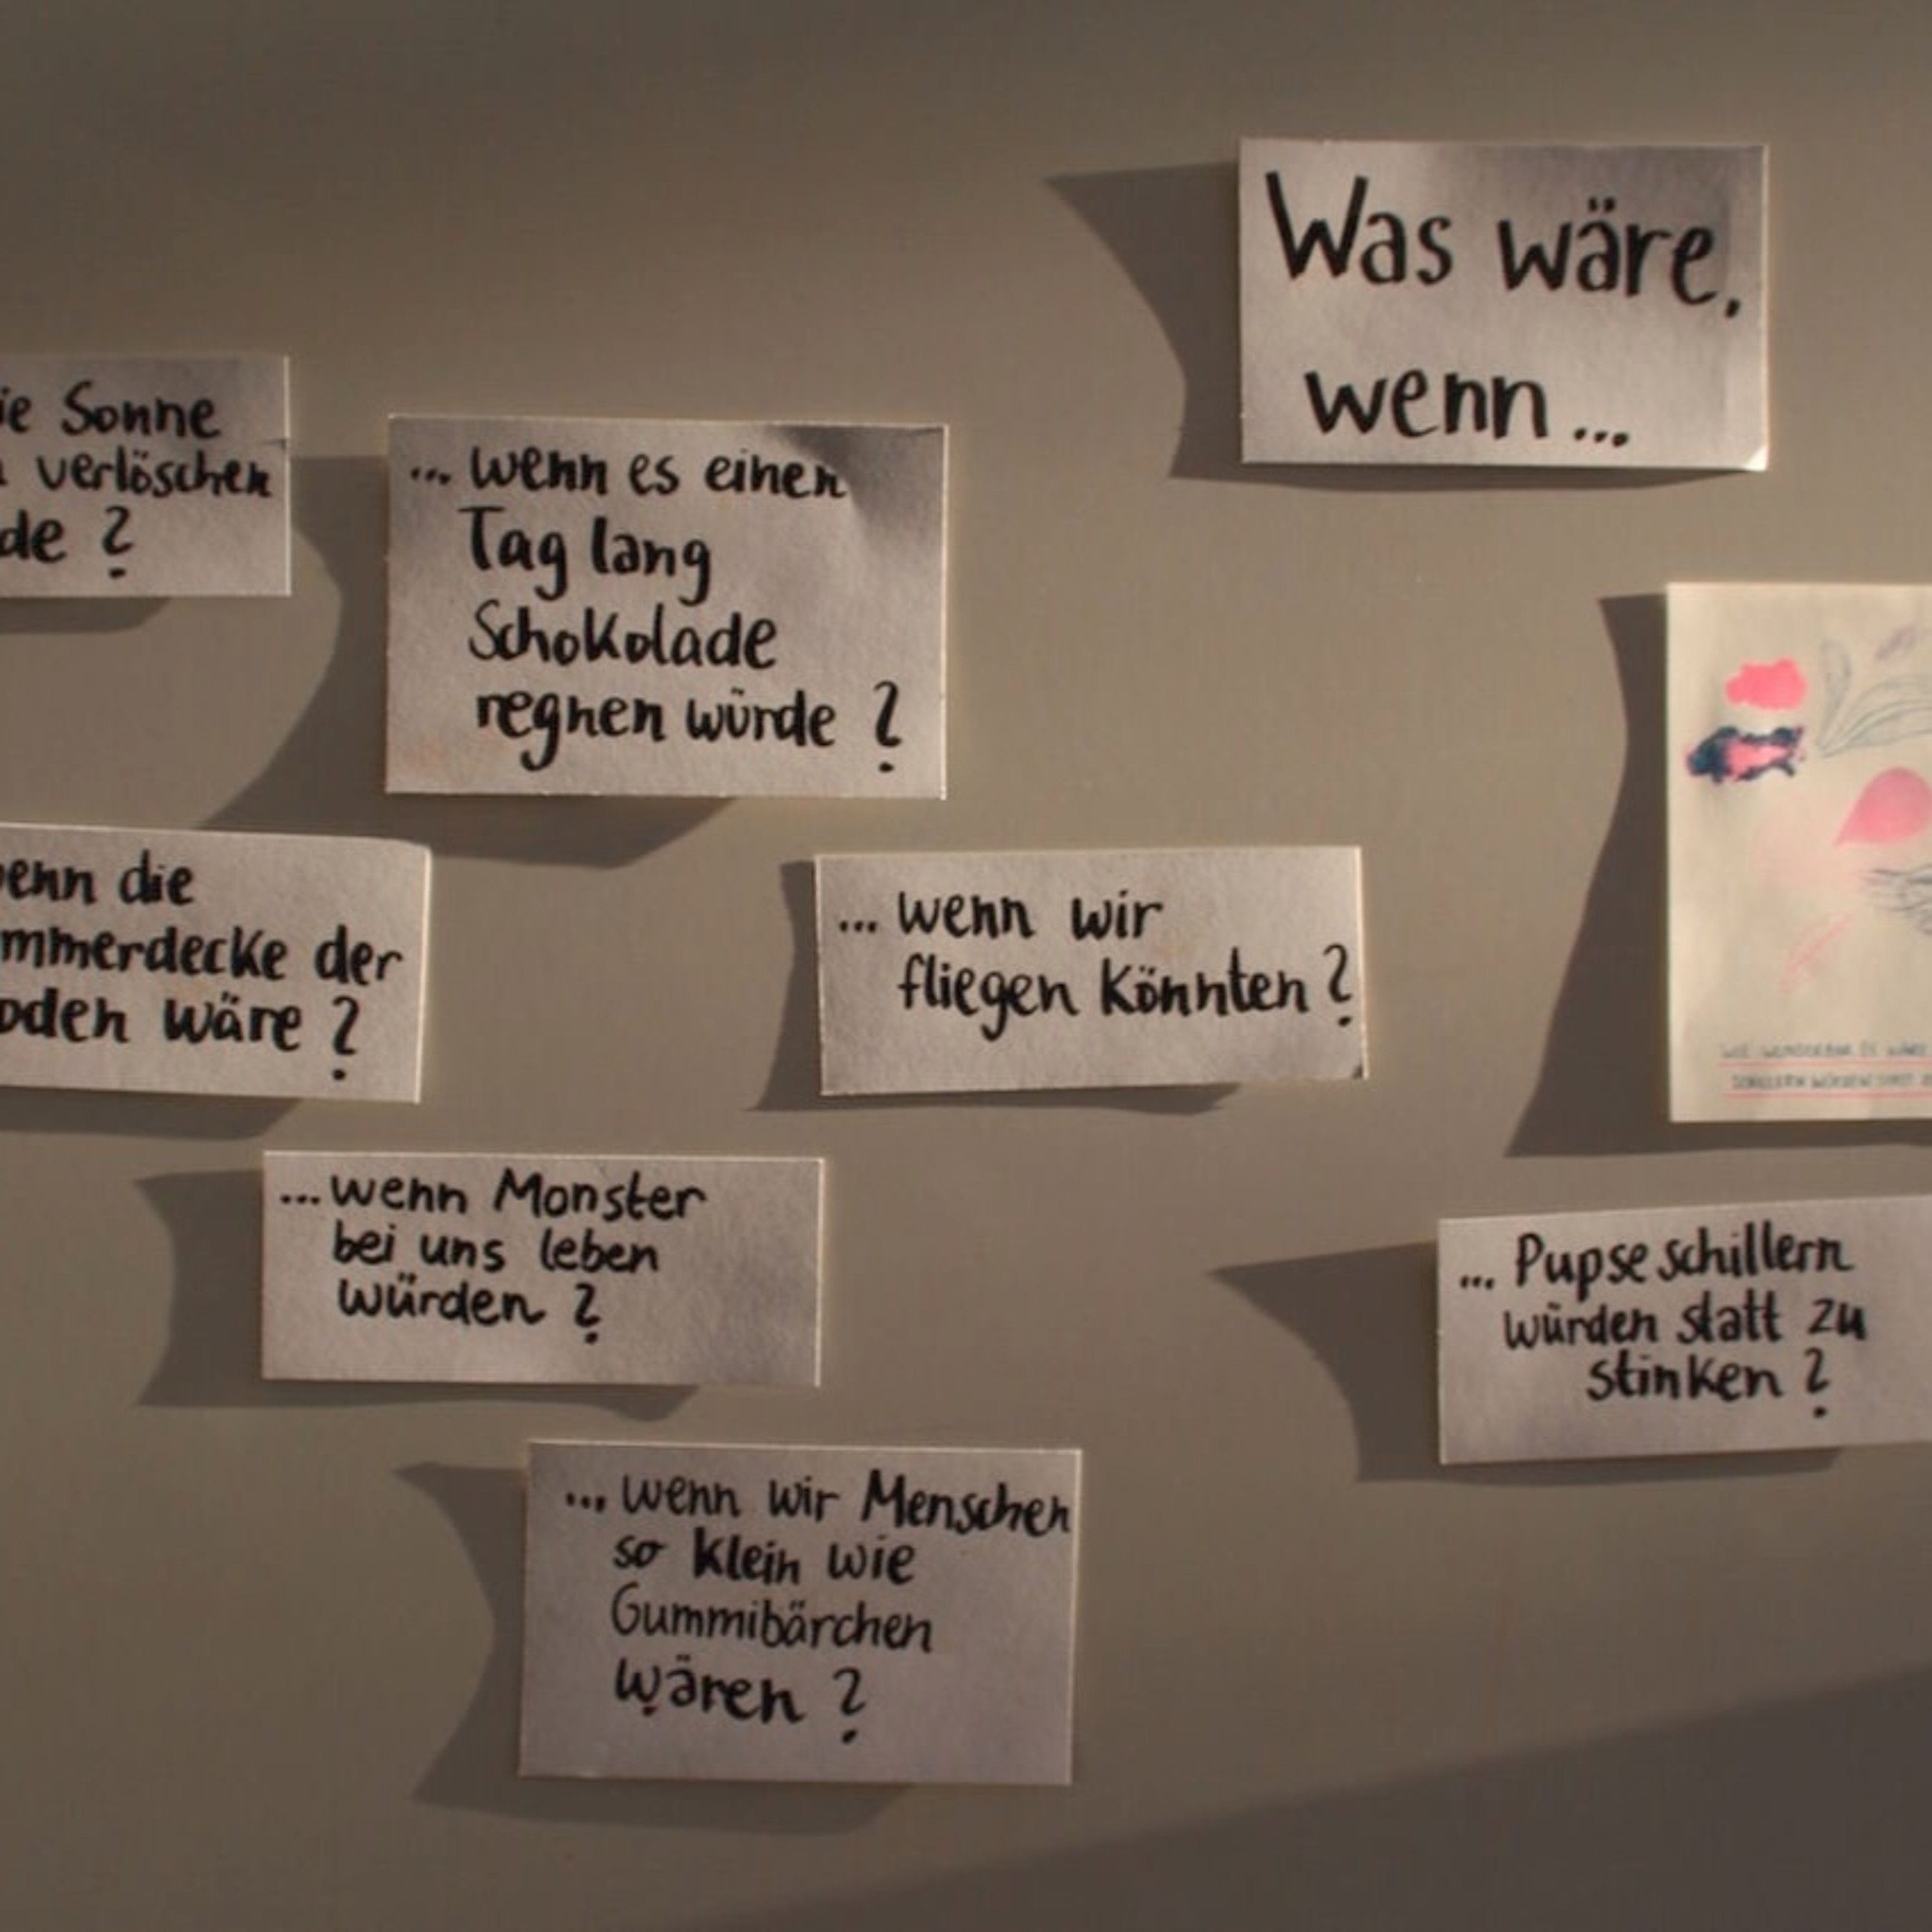 Was wäre,
wenn...
ie Sonne
verlöschen
de ?
... wenn es einen
Tag lang
Schokolade
regnen würde ?
enn die
mmerdecke der
oden wäre ?
... wenn wir
fliegen könnten ?
... wenn Monster
bei uns leben
würden ?
... Pupse schillern
würden statt zu
stinken ?
... wenn wir Menschen
so klein wie
Gummibärchen
wären ?
WIE WUNDERBAR ES WÄRE
SCHILLERN WÜRDEN STATT